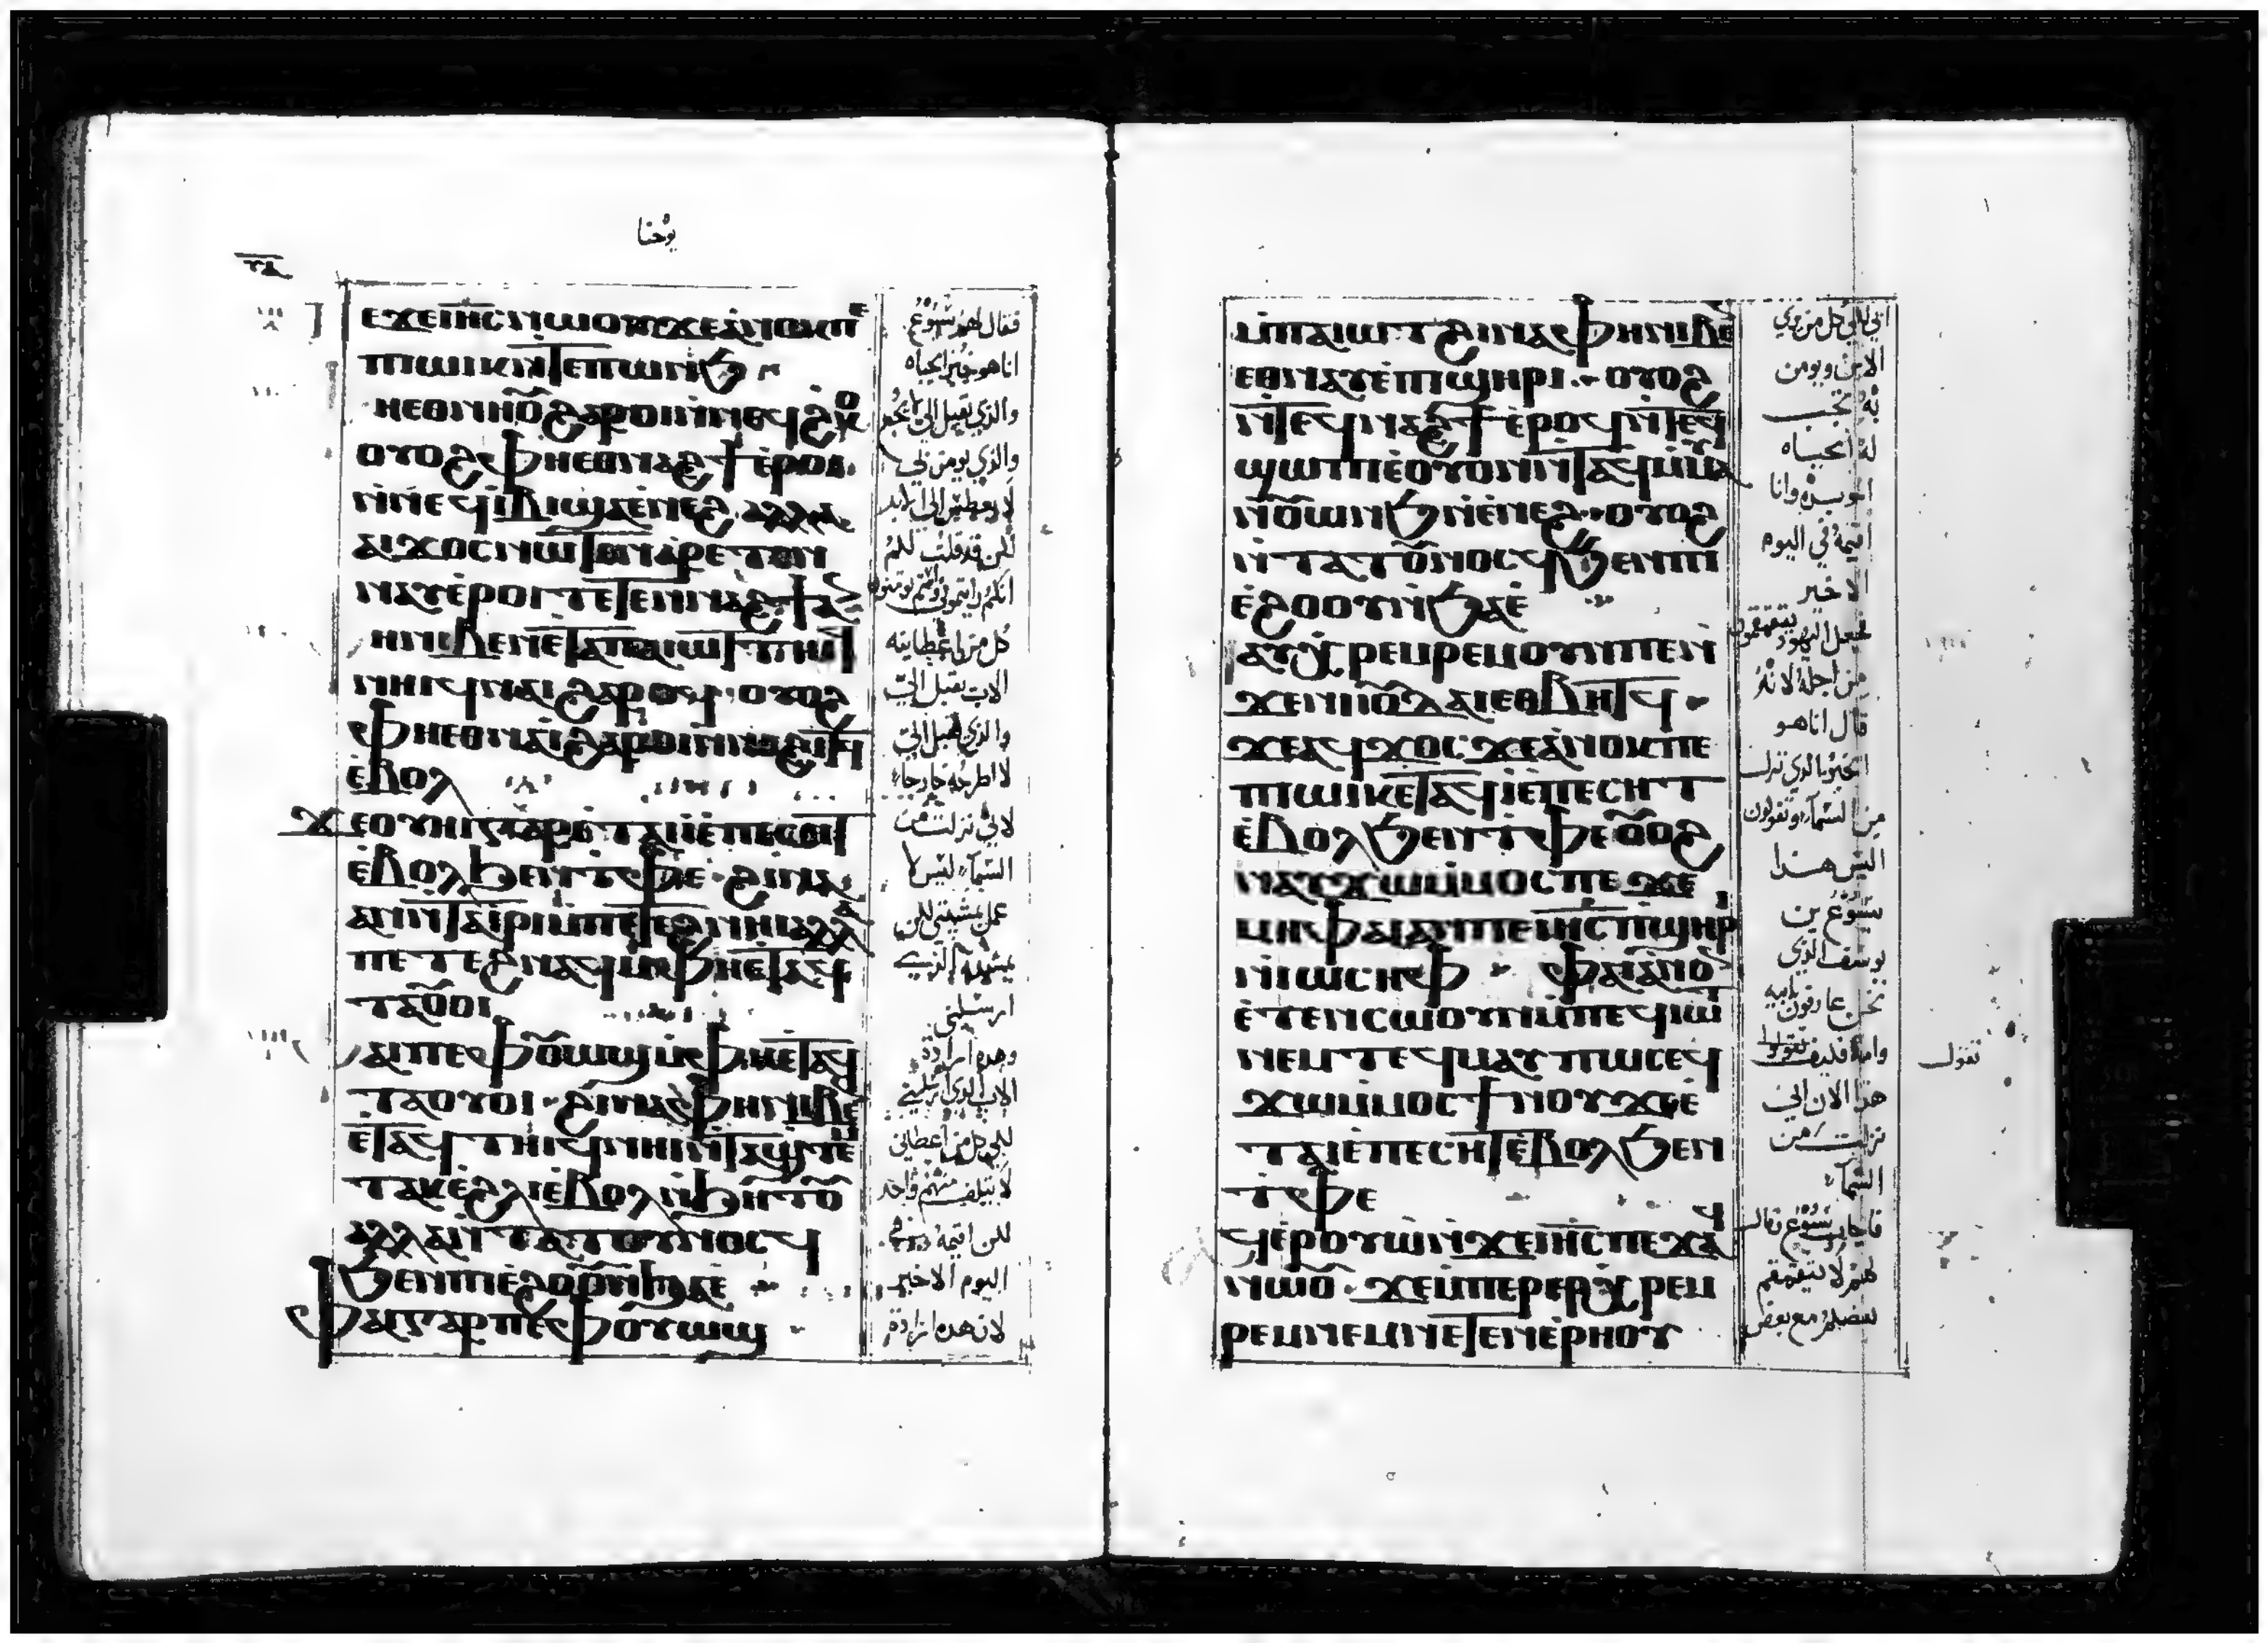 يوحنا
ⲉϫⲉⲓⲏⲥⲛⲱⲟⲩϫⲉⲁⲛⲟⲕⲡⲉ
ⲡⲓⲱⲓⲕⲛⲧⲉⲡⲱⲛϧ
ⲏⲉⲑⲛⲏⲟⲩϩⲁⲣⲟⲓⲛⲛⲉϥϩⲕⲟ
ⲟⲩⲟϩⲫⲏⲉⲑⲛⲁϩϯⲉⲣⲟⲓ
ⲛⲛⲉϥⲓⲃⲓϣⲁⲉⲛⲉϩ ⲁⲗⲗⲁ
ⲁⲓϫⲟⲥⲛⲱⲧⲉⲛ
ⲛⲁⲩⲉⲣⲟⲓ ⲧⲉⲧⲉⲛⲛⲁϩϯ
ⲏⲛⲓⲃⲉⲛⲉⲧⲁⲡⲁⲓⲱⲧ
ⲛⲏⲓϥⲛⲁⲓϩⲁⲣⲟⲓ ⲟⲩⲟϩ
ⲫⲏⲉⲑⲛⲁⲓϩⲁⲣⲟⲓ
ⲉⲃⲟⲗ
ϫⲉⲟⲩⲏⲓⲅⲁⲣⲉⲧⲁⲓⲓⲉⲡⲉⲥⲏⲧ
ⲉⲃⲟⲗϧⲉⲛⲧⲫⲉ ϩⲓⲛⲁ
ⲁⲛⲛⲧⲁⲓⲣⲓⲙⲡⲉⲧⲉϩⲛⲏⲓ ⲁⲗⲗⲁ
ⲡⲉⲧⲉϩⲛⲁϥⲙⲫⲏⲉⲧⲁϥ
ⲧⲁⲟⲩⲟⲓ
ⲁⲓⲡⲉⲫⲟⲩⲱϣⲙⲫⲏⲉⲧⲁϥ
ⲧⲁⲟⲩⲟⲓ ϩⲓⲛⲁⲫⲏⲛⲓⲃⲉ
ⲉⲧⲁϥⲧⲏⲓϥⲛⲏⲓⲛⲧⲁϣⲧⲉⲙ
ⲧⲁⲕⲉϩⲗⲓⲉⲃⲟⲗⲛϧⲏⲧⲟⲩ
ⲁⲗⲗⲁⲛⲧⲁⲧⲟⲩⲛⲟⲥϥ
ϧⲉⲛⲡⲓⲉϩⲟⲟⲩⲛϧⲁⲉ
ⲫⲁⲓⲅⲁⲣⲡⲉⲫⲟⲩⲱϣ
فقال لهم يسوع
انا هو خبز الحياه
والذي يقبل الي لا يجوع
والذي يومن بي
لا يعطش الي الابد
لكن قد قلت لكم
كل من اعطانيه
الاب يقبل الي
والذي يقبل الي
لا اطرحه خارجا
لاني نزلت من
السما ليس لا
عمل مشيتي لكن
ارسلني
وهذه ارادة
الاب الذي ارسلني
لكي كل من اعطاني
لا يتلف منهم واحد
لكن اقيمه في
اليوم الاخير
لان هذه ارادة
ⲙⲡⲁⲓⲱⲧϩⲓⲛⲁⲫⲏⲛⲓⲃⲉ
ⲉⲑⲛⲁⲩⲉⲡϣⲏⲣⲓ ⲟⲩⲟϩ
ⲛⲧⲉϥⲛⲁϩϯⲉⲣⲟϥⲛⲧⲉϥ
ϣⲱⲡⲓⲉⲟⲩⲟⲛⲛⲧⲁϥⲙⲙⲁ
ⲛⲟⲩⲱⲛϧⲛⲉⲛⲉϩ ⲟⲩⲟϩ
ⲛⲧⲁⲧⲟⲩⲛⲟⲥϥϧⲉⲛⲡⲓ
ⲉϩⲟⲟⲩⲛϧⲁⲉ
ⲁⲩⲭⲣⲉⲙⲣⲉⲙⲟⲩⲛⲡⲉⲛ
ϫⲉⲛⲓⲓⲟⲩⲇⲁⲓⲉⲑⲃⲏⲧϥ
ϫⲉⲁϥϫⲟⲥϫⲉⲁⲛⲟⲕⲡⲉ
ⲡⲓⲱⲓⲕⲉⲧⲁϥⲓⲉⲡⲉⲥⲏⲧ
ⲉⲃⲟⲗϧⲉⲛⲧⲫⲉ ⲟⲩⲟϩ
ⲛⲁⲩϫⲱⲙⲙⲟⲥⲡⲉ ϫⲉ
ⲙⲏⲫⲁⲓⲁⲛⲡⲉⲓⲏⲥⲡϣⲏⲣⲓ
ⲛⲓⲱⲥⲏⲫ ⲫⲁⲓⲁⲛⲟ
ⲉⲧⲉⲛⲥⲱⲟⲩⲛⲙⲡⲉϥⲓⲱⲧ
ⲛⲉⲙⲧⲉϥⲙⲁⲩ ⲡⲱⲥⲉϥ
ϫⲱⲙⲙⲟⲥϯⲛⲟⲩϫⲉⲉ
ⲧⲁⲓⲉⲡⲉⲥⲏⲧⲉⲃⲟⲗϧⲉⲛ
ⲧⲫⲉ
ϥⲉⲣⲟⲩⲱⲛϫⲉⲓⲏⲥⲡⲉϫⲁϥ
ⲛⲱⲟⲩ ϫⲉⲙⲡⲉⲣⲉⲣⲭⲣⲉⲙ
ⲣⲉⲙⲛⲉⲙⲛⲉⲧⲉⲛⲉⲣⲏⲟⲩ
ابي لكي كل من يري
الابن ويومن
به تجب
له الحياه
الموبده وانا
اقيمه في اليوم
الاخير
فجعل اليهود يتقمقمون
من اجله لانه
قال انا هو
الخبز الذي نزل
من السما وتقولون
اليس هذا
يسوع بن
يوسف الذي
نحن عارفون بابيه
وامه فكيف
نقول
هذا الان اني
نزلت من
السما
فاجاب يسوع وقال
لهم لا تتقمقم
بعضكم مع بعض